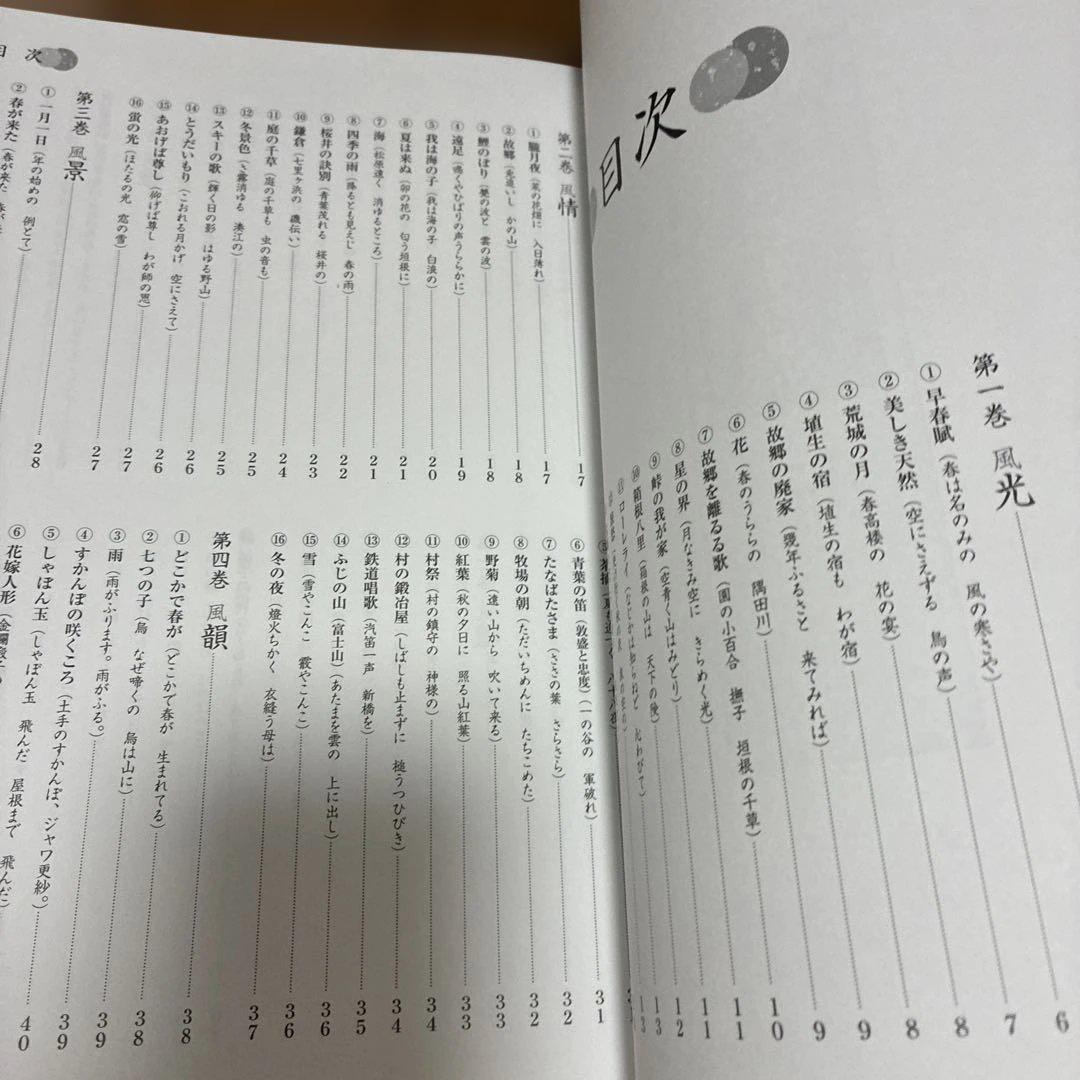 目次
第一巻 風光 6
①早春賦(春は名のみの 風の寒さや) 7
②美しき天然(空にさえずる 鳥の声) 8
③荒城の月(春高楼の 花の宴) 8
④埴生の宿(埴生の宿も わが宿) 9
⑤故郷の廃家(幾年ふるさと 来てみれば) 9
⑥花(春のうららの 隅田川) 10
⑦故郷を離るる歌(園の小百合 撫子 垣根の千草) 11
⑧星の界(月なきみ空に きらめく光) 11
⑨峠の我が家(空青く山はみどり) 12
⑩箱根八里(箱根の山は 天下の険) 13
⑪ローレライ(なじかは知らねど 心わびて) 13
目次
第二巻 風情 17
①朧月夜(菜の花畑に 入日薄れ) 17
②故郷(兎追いし かの山) 18
③鯉のぼり(甍の波と 雲の波) 18
④遠足(鳴くやひばりの声うららかに) 19
⑤我は海の子(我は海の子 白浪の) 20
⑥夏は来ぬ(卯の花の 匂う垣根に) 21
⑦海(松原遠く 消ゆるところ) 21
⑧四季の雨(降るとも見えじ 春の雨) 22
⑨桜井の訣別(青葉茂れる 桜井の) 23
⑩鎌倉(七里ヶ浜の 磯伝い) 24
⑪庭の千草(庭の千草も 虫の音も) 25
⑫冬景色(さ霧消ゆる 湊江の) 25
⑬スキーの歌(輝く日の影 はゆる野山) 26
⑭とうだいもり(こおれる月かげ 空にさえて) 26
⑮あおげば尊し(仰げば尊し わが師の恩) 27
⑯蛍の光(ほたるの光 窓の雪) 27
第三巻 風景 28
①一月一日(年の始めの 例とて)
②春が来た(春が来た
⑥青葉の笛(敦盛と忠度)(一の谷の 軍破れ) 31
⑦たなばたさま(ささの葉 さらさら) 32
⑧牧場の朝(ただいちめんに たちこめた) 32
⑨野菊(遠い山から 吹いて来る) 33
⑩紅葉(秋の夕日に 照る山紅葉) 33
⑪村祭(村の鎮守の 神様の) 34
⑫村の鍛冶屋(しばしも止まずに 槌うつひびき) 34
⑬鉄道唱歌(汽笛一声 新橋を) 35
⑭ふじの山(富士山)(あたまを雲の 上に出し) 36
⑮雪(雪やこんこ 霰やこんこ) 36
⑯冬の夜(燈火ちかく 衣縫う母は) 37
第四巻 風韻 38
①どこかで春が(どこかで春が 生まれてる) 38
②七つの子(烏 なぜ啼くの 烏は山に) 39
③雨(雨がふります。雨がふる。) 39
④すかんぽの咲くころ(土手のすかんぽ、ジャワ更紗。) 40
⑤しゃぼん玉(しゃぼん玉 飛んだ 屋根まで 飛んだ)
⑥花嫁人形(金襴緞子